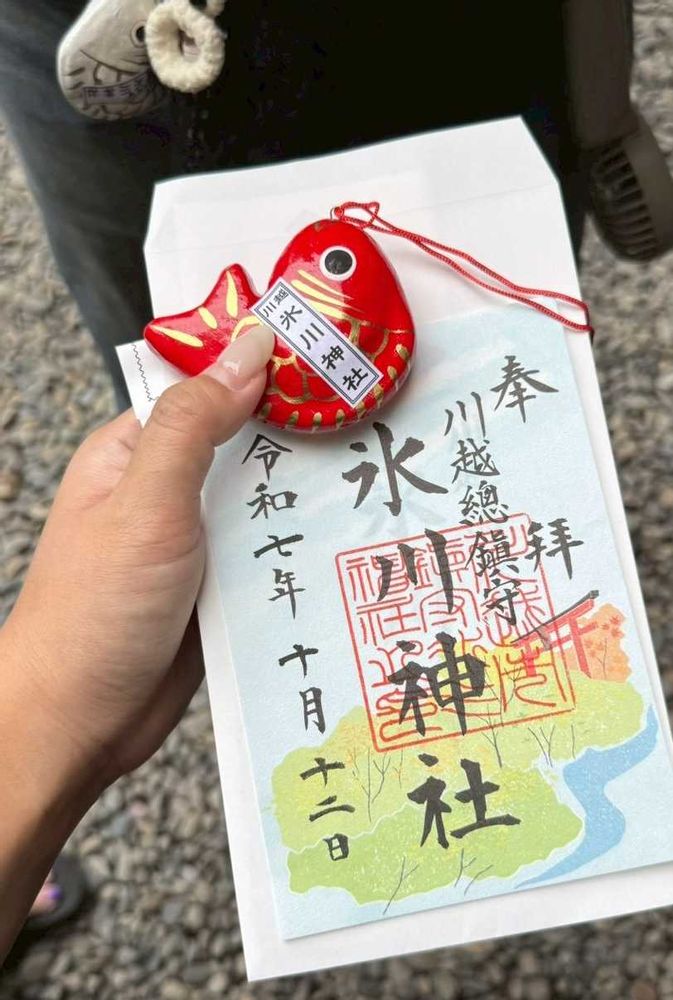 川越
氷川神社
奉拝
川越總鎮守
氷川神社
令和七年十月十二日